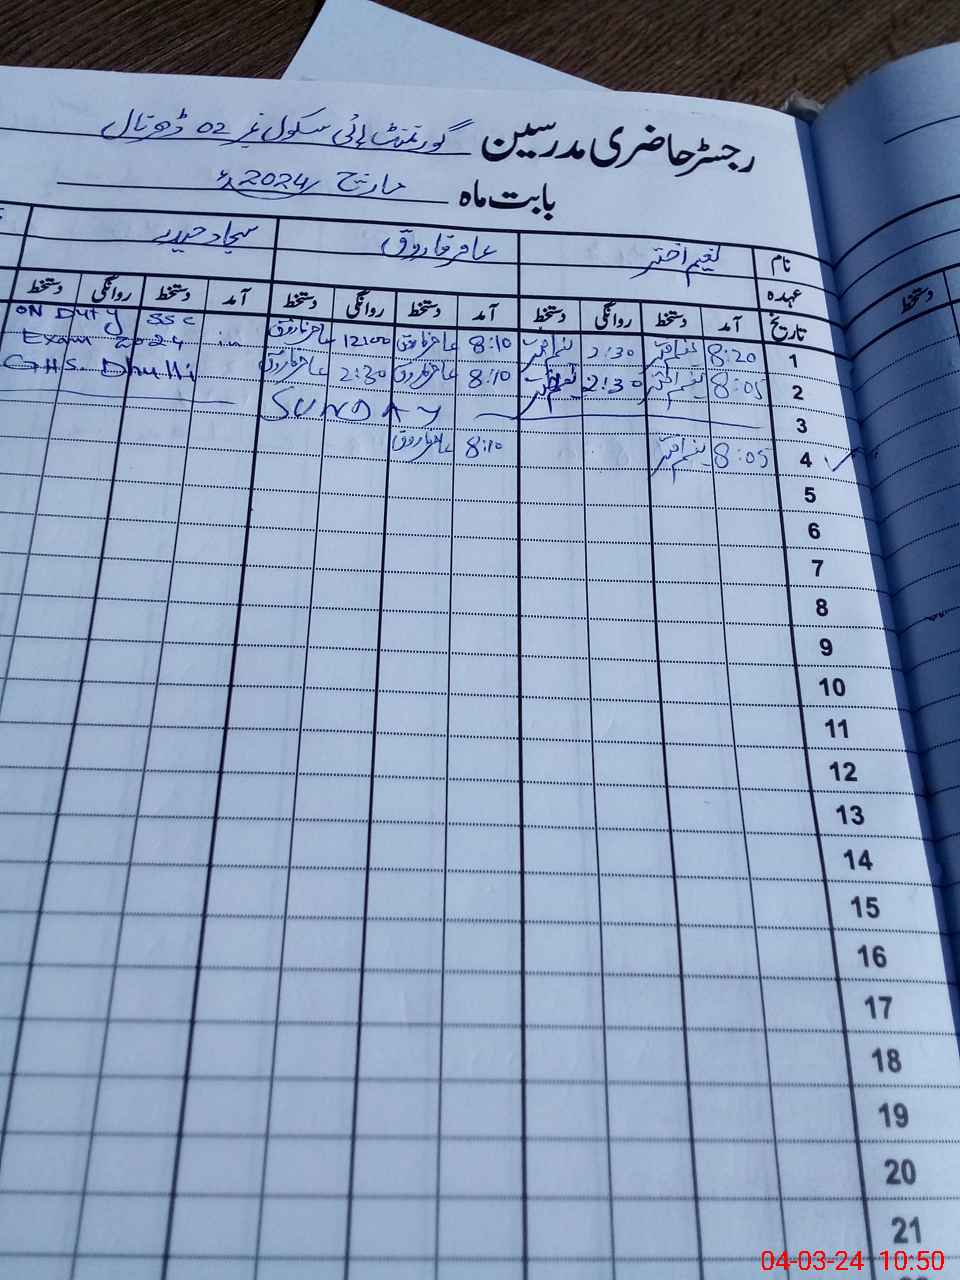 رجسٹر حاضری مدرسین گورنمنٹ ہائی سکول نمبر 02 ڈھرنال
بابت ماہ مارچ 2024ء
نام نعیم اختر عامر فاروق سجاد حیدر
عہدہ
تاریخ آمد دستخط روانگی دستخط آمد دستخط روانگی دستخط آمد دستخط روانگی دستخط
دستخط
1 8:20 نعیم اختر 2:30 نعیم اختر 8:10 عامر فاروق 12:00 عامر فاروق
ON Duty SSC
Exam 2024 in
G.H.S. Dhulli
2 8:05 نعیم اختر 2:30 نعیم اختر 8:10 عامر فاروق 2:30 عامر فاروق
3 SUNDAY
4 8:05 نعیم اختر 8:10 عامر فاروق
5
6
7
8
9
10
11
12
13
14
15
16
17
18
19
20
21
04-03-24 10:50